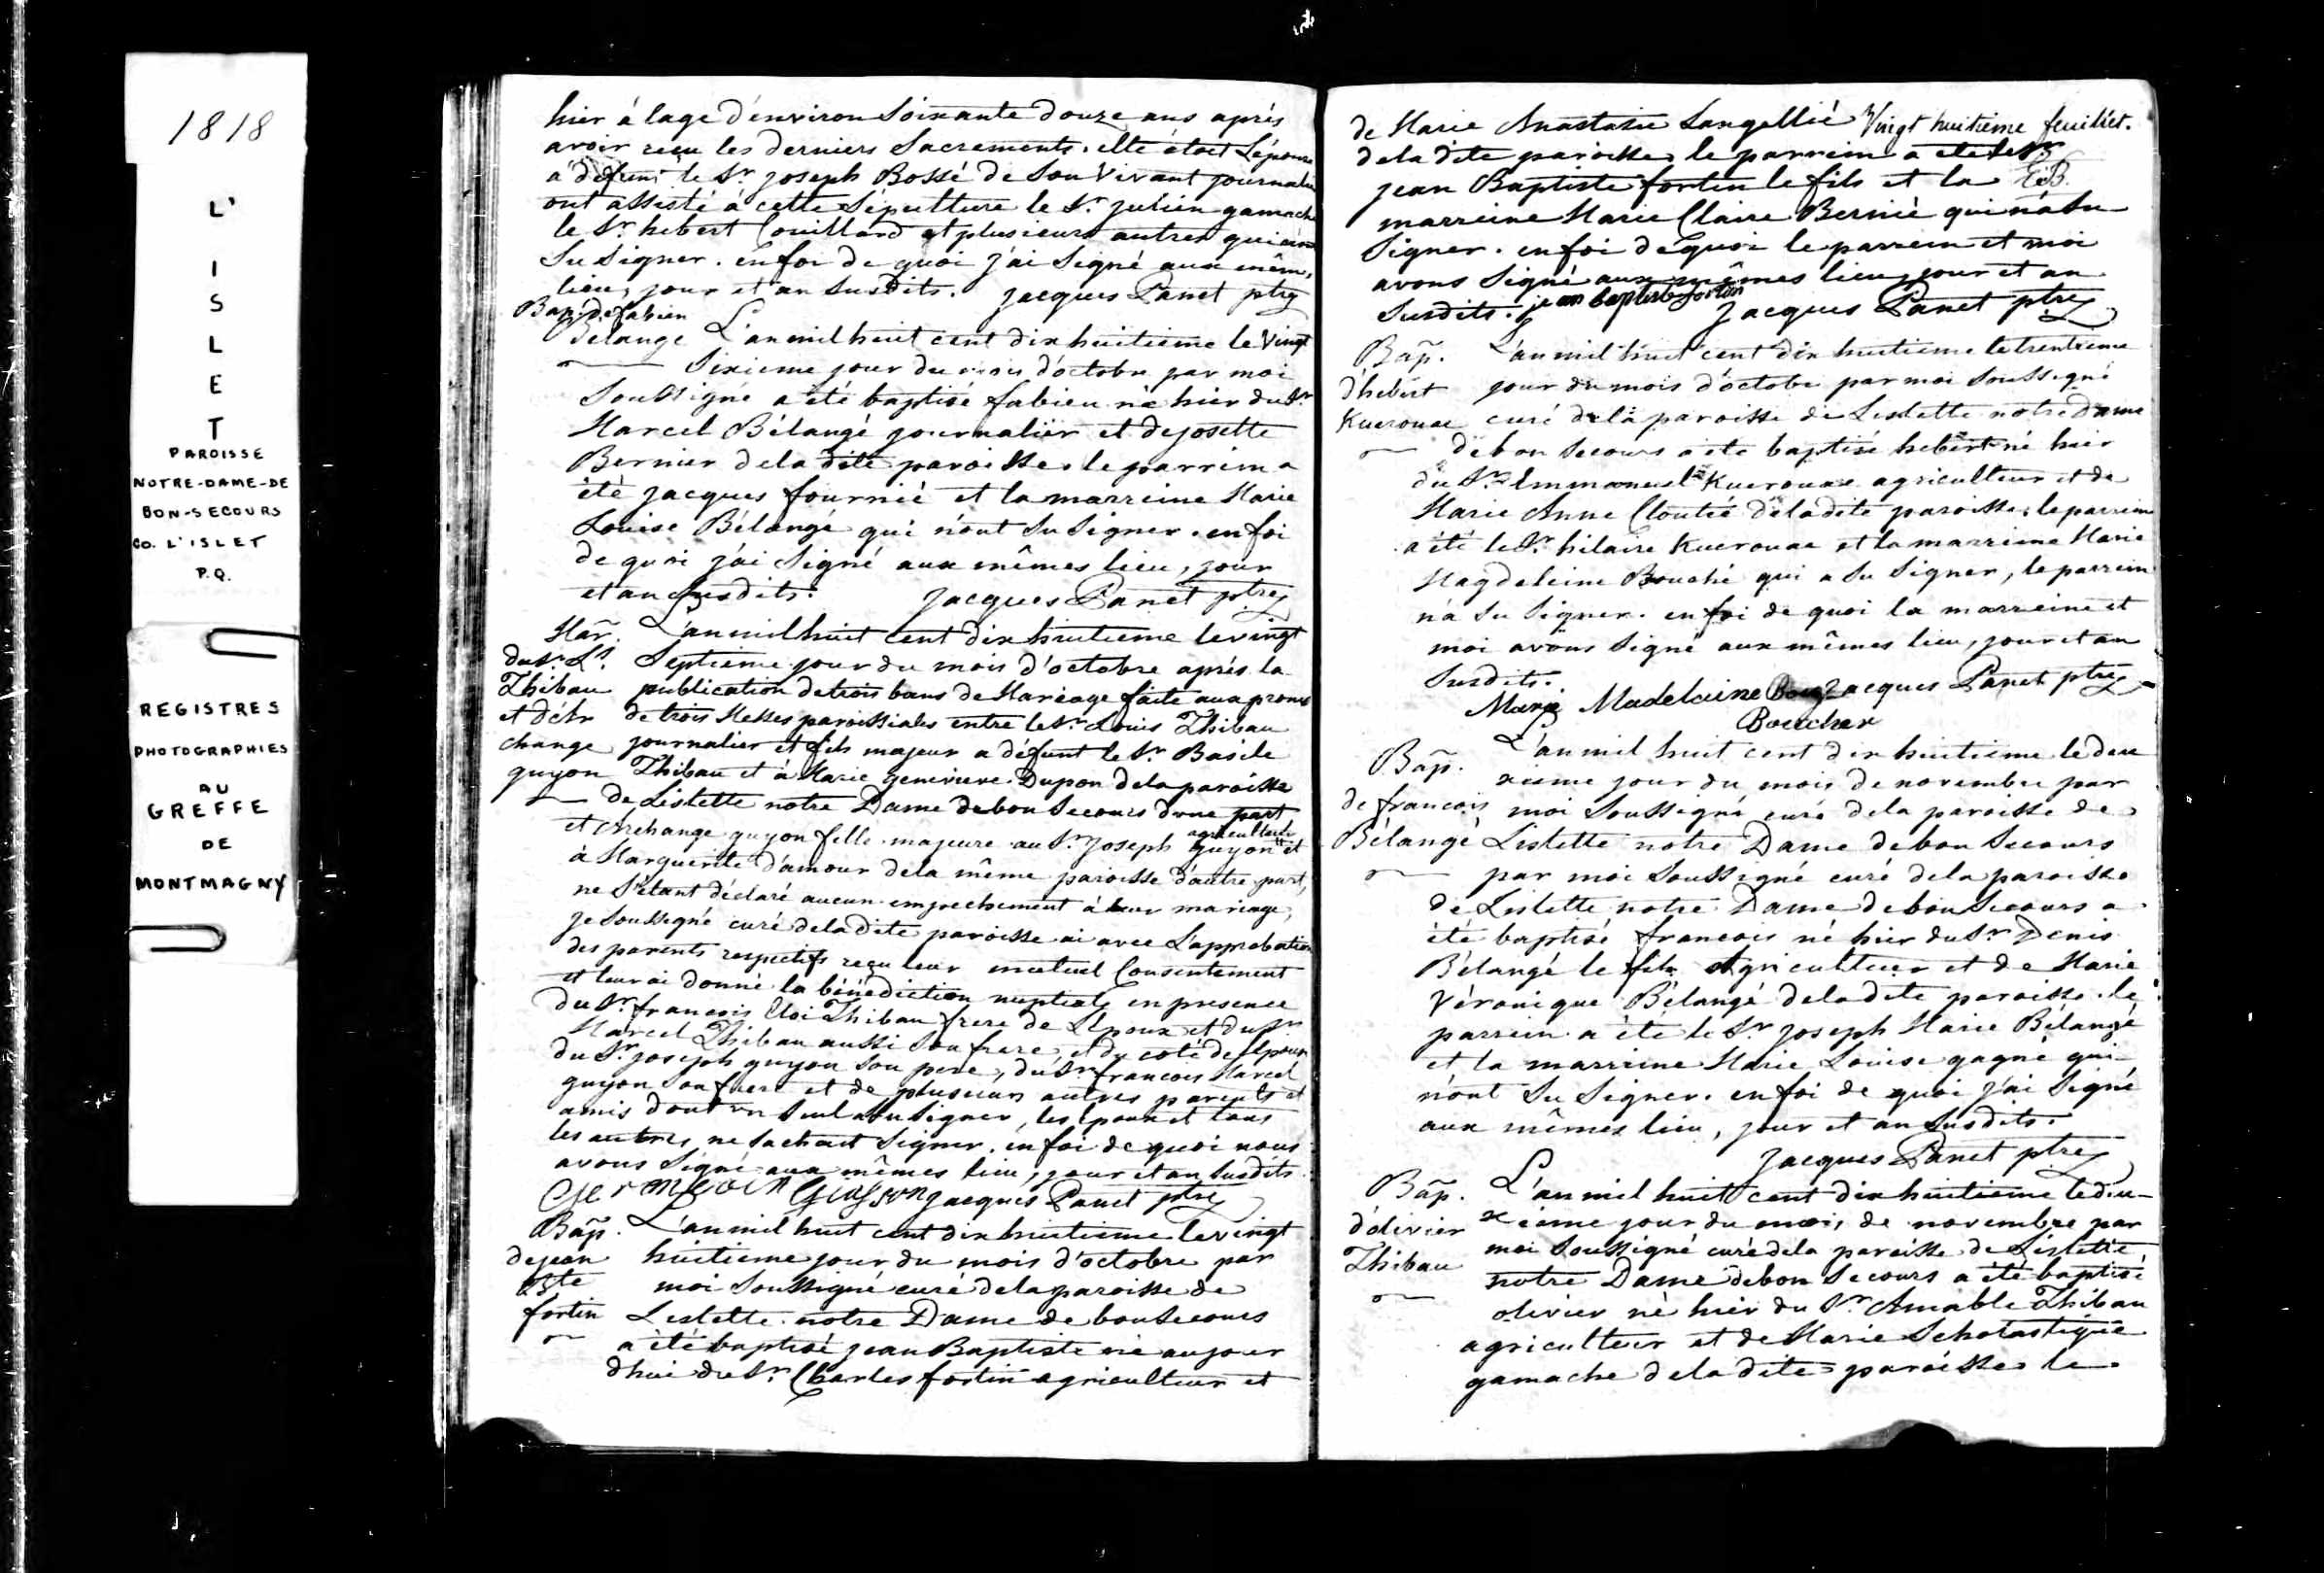 1818
L'
I
S
L
E
T
PAROISSE
NOTRE-DAME-DE
BON-SECOURS
CO. L'ISLET
P.Q.
REGISTRES
PHOTOGRAPHIES
AU
GREFFE
DE
MONTMAGNY
hier à lage d'environ Soixante douze ans après
avoir reçu les derniers Sacrements. elle étoit Lépouse
a défunt le Sr. joseph Bossé de Son Vivant journalier
ont assisté à cette Sépulture le Sr. julien gamache
le Sr. hebert Couillard et plusieurs autres qui
Su Signer. en foi de quoi j'ai Signé aux même,
lieu, jour et an Susdits. jacques Panet ptre
Bap. de fabien
Bélange L'an mil huit cent dix huitieme le Vingt
Sixieme jour du mois d'octobre par moi
Soussigné a été baptisé fabien né hier du Sr.
Marcel Bélangé journalier et de josette
Bernier dela dite paroisse. le parrim a
été jacques fournié et la marreine Marie
Louise Bélangé qui n'ont Su Signer. en foi
de quoi j'ai Signé aux mêmes lieu, jour
et an Susdits. jacques Panet ptre
Mar. L'an mil huit cent dix huitieme le vingt
du Sr. Ls. Septieme jour du mois d'octobre après la
Thibau publication de trois bans de Mariage faite aux prones
et d'Ar de trois Messes paroissiales entre le Sr. Louis Thibau
change journalier et fils majeur a défunt le Sr. Basile
guyon Thibau et à Marie genevieve Dupon dela paroisse
de Lislette notre Dame de bon Secours d'une part
et Archange guyon fille majeure au Sr. joseph guyon agriculteur et
à Marguerite d'amour dela même paroisse d'autre part,
ne S'étant déclaré aucun empechement à leur mariage,
je Soussigné curé dela dite paroisse ai avec L'approbation
des parents respectifs reçu leur mutuel Consentement
et leur ai donné la bénédiction nuptiale en presence
du Sr. francois Eloi Thibau frere de Lepoux et du Sr
Marcel Thibau aussi Son frere, et du coté de Lepouse
du Sr. joseph guyon Son pere, du Sr. francois Marcel
guyon Son frere et de plusieurs autres parents et
amis dont un Seul a Su Signer, les Epoux et tous
les autres ne Sachant Signer. en foi de quoi nous
avons Signé aux mêmes lieu, jour et an Susdits.
jacques Panet ptre
Bap. L'an mil huit cent dix huitieme le vingt
de jean huitieme jour du mois d'octobre par
Bte moi Soussigné curé dela paroisse de
fortin Leslette notre Dame de bon Secours
a été baptisé jean Baptiste né aujour
dhui du Sr. Charles fortin agriculteur et
de Marie Anastasie Langellié Vingt huitieme feuillet.
dela dite paroisse, le parrein a été le Sr
jean Baptiste fortin le fils et la E.B.
marreine Marie Claire Bernié qui n'a Su
Signer. en foi de quoi le parrein et moi
avons Signé aux mêmes lieu, jour et an
Susdits. jean baptiste fortin jacques Panet ptre
Bap. L'an mil huit cent dix huitieme le trentieme
d'hebert jour du mois d'octobre par moi Soussigné
Kuerouac curé dela paroisse de Leslette notre Dame
de bon Secours a été baptisé hebert né hier
du Sr. Emmanuel Kuerouac agriculteur et de
Marie Anne Cloutié dela dite paroisse, le parrein
a été le Sr. hilaire Kuerouac et la marreine Marie
Magdeleine Bouché qui a Su Signer, le parrein
n'a Su Signer. en foi de quoi la marreine et
moi avons Signé aux mêmes lieu, jour et an
Susdits.
Marie Madelaine jacques Panet ptre
Boucher
Bap. L'an mil huit cent dix huitieme le deu
xieme jour du mois de novembre par
de francois moi Soussigné curé dela paroisse de
Bélangé Lislette notre Dame de bon Secours
par moi Soussigné curé dela paroisse
de Lislette notre Dame de bon Secours a
été baptisé francois né hier du Sr Denis
Bélangé le fils Agriculteur et de Marie
Véronique Bélangé dela dite paroisse. le
parrein a été le Sr joseph Marie Bélangé
et la marreine Marie Louise gagné qui
n'ont Su Signer. en foi de quoi j'ai Signé
aux mêmes lieu, jour et an Susdits.
jacques Panet ptre
Bap. L'an mil huit cent dix huitieme le deu-
d'olivier xieme jour du mois de novembre par
Thibau moi Soussigné curé dela paroisse de Lislette
notre Dame de bon Secours a été baptisé
olivier né hier du Sr Amable Thibau
agriculteur et de Marie Scholastique
gamache dela dite paroisse le